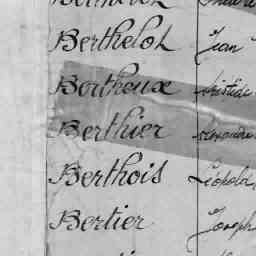 Berthelot Jean
Bertheux Aristide
Berthier
Berthois Léopold
Bertier Joseph